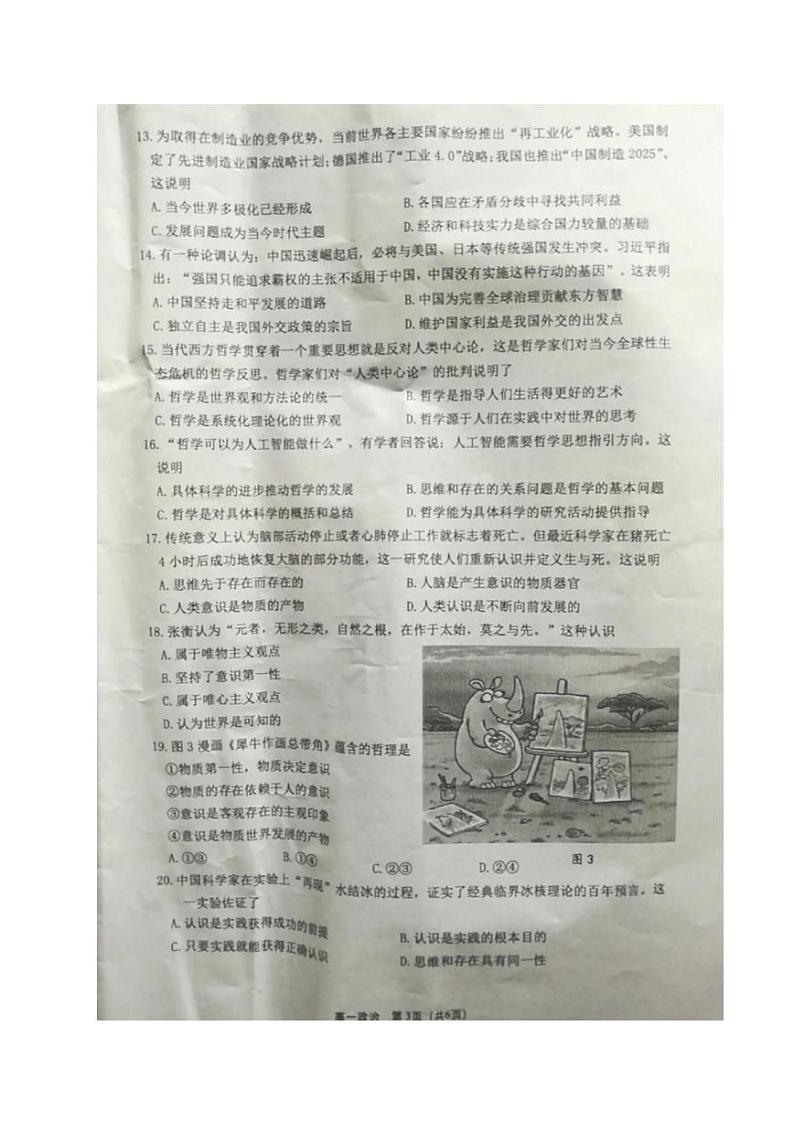 13.为取得在制造业的竞争优势，当前世界各主要国家纷纷推出“再工业化”战略。美国制
定了先进制造业国家战略计划;德国推出了“工业4.0”战略;我国也推出“中国制造2025”。
这说明
A.当今世界多极化已经形成 B.各国应在矛盾分歧中寻找共同利益
C.发展问题成为当今时代主题 D.经济和科技实力是综合国力较量的基础
14.有一种论调认为：中国迅速崛起后，必将与美国、日本等传统强国发生冲突。习近平指
出：“强国只能追求霸权的主张不适用于中国，中国没有实施这种行动的基因”。这表明
A.中国坚持走和平发展的道路 B.中国为完善全球治理贡献东方智慧
C.独立自主是我国外交政策的宗旨 D.维护国家利益是我国外交的出发点
15.当代西方哲学贯穿着一个重要思想就是反对人类中心论，这是哲学家们对当今全球性生
态危机的哲学反思。哲学家们对“人类中心论”的批判说明了
A.哲学是世界观和方法论的统一 B.哲学是指导人们生活得更好的艺术
C.哲学是系统化理论化的世界观 D.哲学源于人们在实践中对世界的思考
16.“哲学可以为人工智能做什么”，有学者回答说：人工智能需要哲学思想指引方向。这
说明
A.具体科学的进步推动哲学的发展 B.思维和存在的关系问题是哲学的基本问题
C.哲学是对具体科学的概括和总结 D.哲学能为具体科学的研究活动提供指导
17.传统意义上认为脑部活动停止或者心肺停止工作就标志着死亡。但最近科学家在猪死亡
4小时后成功地恢复大脑的部分功能，这一研究使人们重新认识并定义生与死。这说明
A.思维先于存在而存在的 B.人脑是产生意识的物质器官
C.人类意识是物质的产物 D.人类认识是不断向前发展的
18.张衡认为“元者，无形之类，自然之根，在作于太始，莫之与先。”这种认识
A.属于唯物主义观点
B.坚持了意识第一性
C.属于唯心主义观点
D.认为世界是可知的
19.图3漫画《犀牛作画总带角》蕴含的哲理是
①物质第一性，物质决定意识
②物质的存在依赖于人的意识
③意识是客观存在的主观印象
④意识是物质世界发展的产物
A.①③ B.①④ C.②③ D.②④
图3
20.中国科学家在实验上“再现”水结冰的过程，证实了经典临界冰核理论的百年预言。这
一实验佐证了
A.认识是实践获得成功的前提 B.认识是实践的根本目的
C.只要实践就能获得正确认识 D.思维和存在具有同一性
高一政治 第3页（共6页）